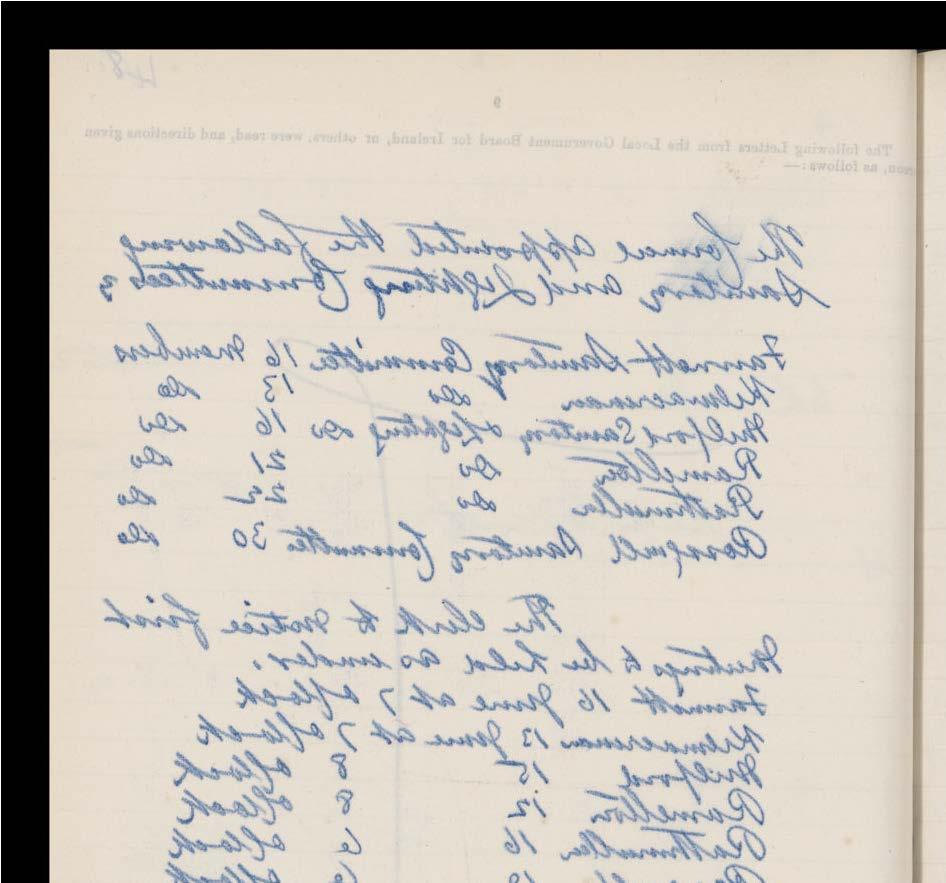 48
9
The following Letters from the Local Government Board for Ireland, or others, were read, and directions given
reon, as follows:—
The Council appointed the following
Sanitary and Lighting Committees
Fannett Sanitary Committee 16 Members
Kilmacrenan Do 13 Do
Milford Sanitary & Lighting Do 16 Do
Ramelton Do 21 Do
Rathmullan Do 22 Do
Rosquill Sanitary Committee 30 Do
The Clerk to notice first
Meetings to be held as under.
Fannett 16 June at 7 oClock
Kilmacrenan 13 June at 7 oClock
Milford 15 8 oClock
Ramelton 12 8 oClock
Rathmullan 16 6 oClock
oClock